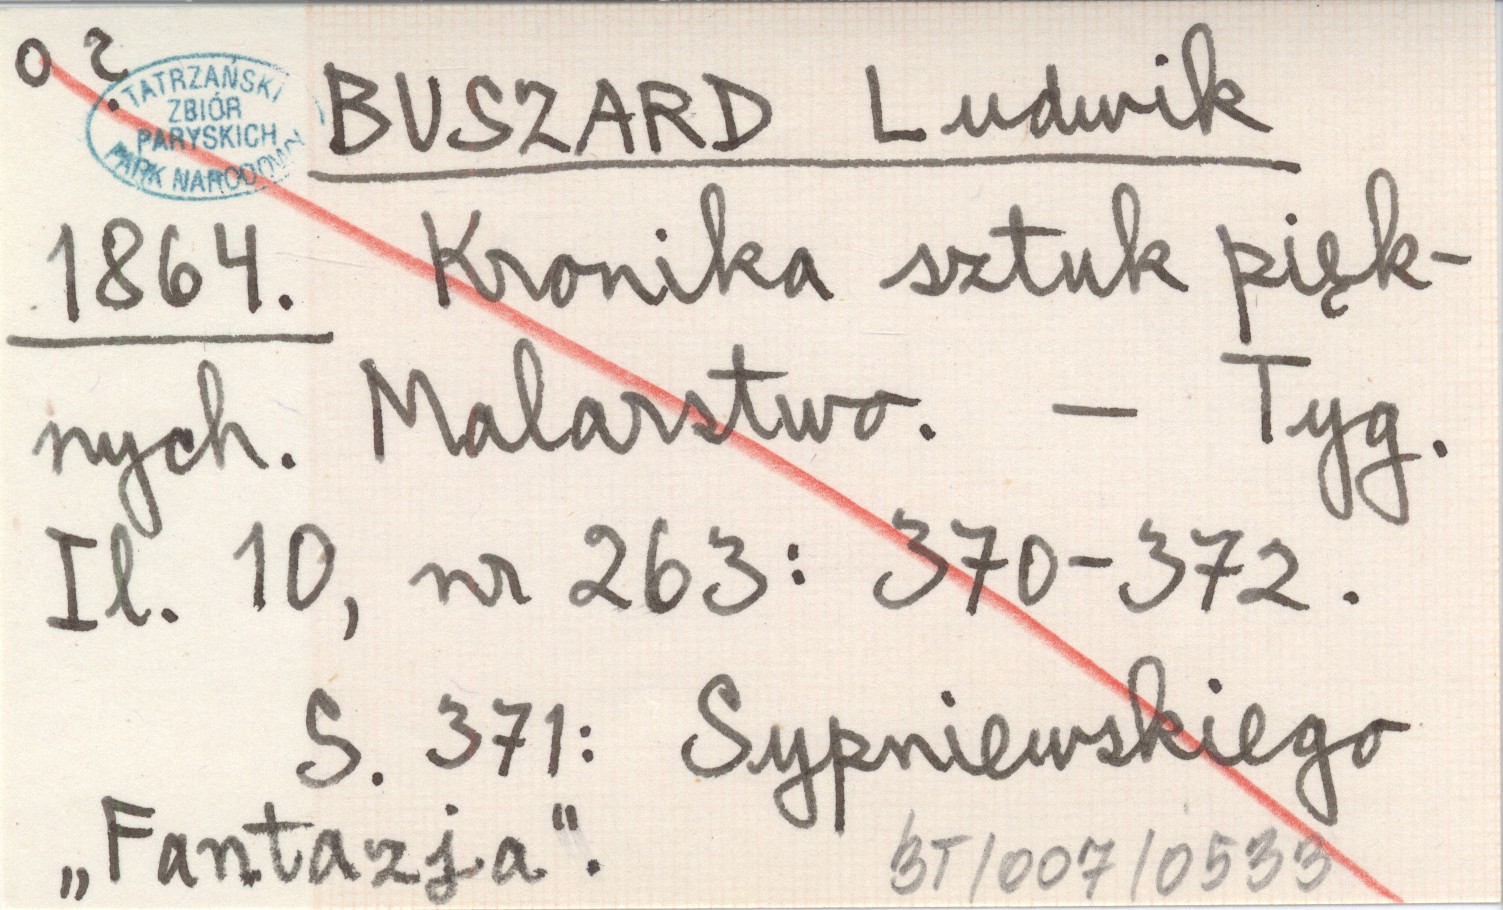 o ?
TATRZAŃSKI
ZBIÓR
PARYSKICH
PARK NARODOWY
BUSZARD Ludwik
1864. Kronika sztuk pięk-
nych. Malarstwo. — Tyg.
Il. 10, nr 263: 370-372.
S. 371: Sypniewskiego
„Fantazja".
BT/007/0533